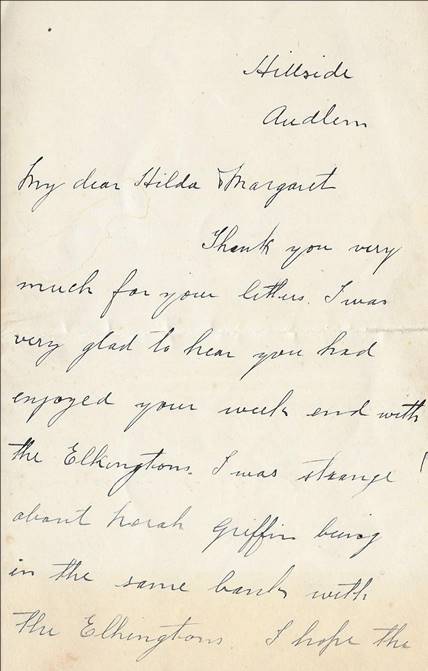 Hillside
Audlem
My dear Hilda & Margaret
Thank you very
much for your letters. I was
very glad to hear you had
enjoyed your week end with
the Elkingtons. I was strange !
about Norah Griffin being
in the same bank with
the Elkingtons I hope the